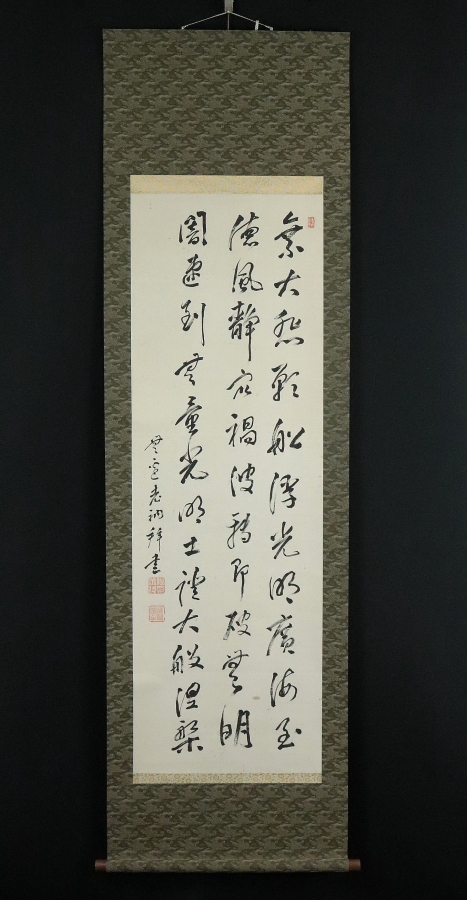 乘大悲願船浮光明廣海至
徳風靜衆禍波轉即破無明
闇速到無量光明土證大般涅槃
老衲拜書